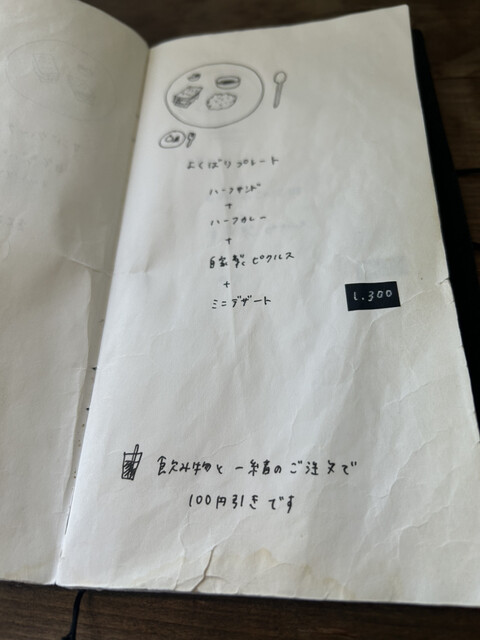 よくばりプレート
ハーフサンド
+
ハーフカレー
+
自家製ピクルス
+
ミニデザート
1.300
飲み物と一緒のご注文で
100円引きです